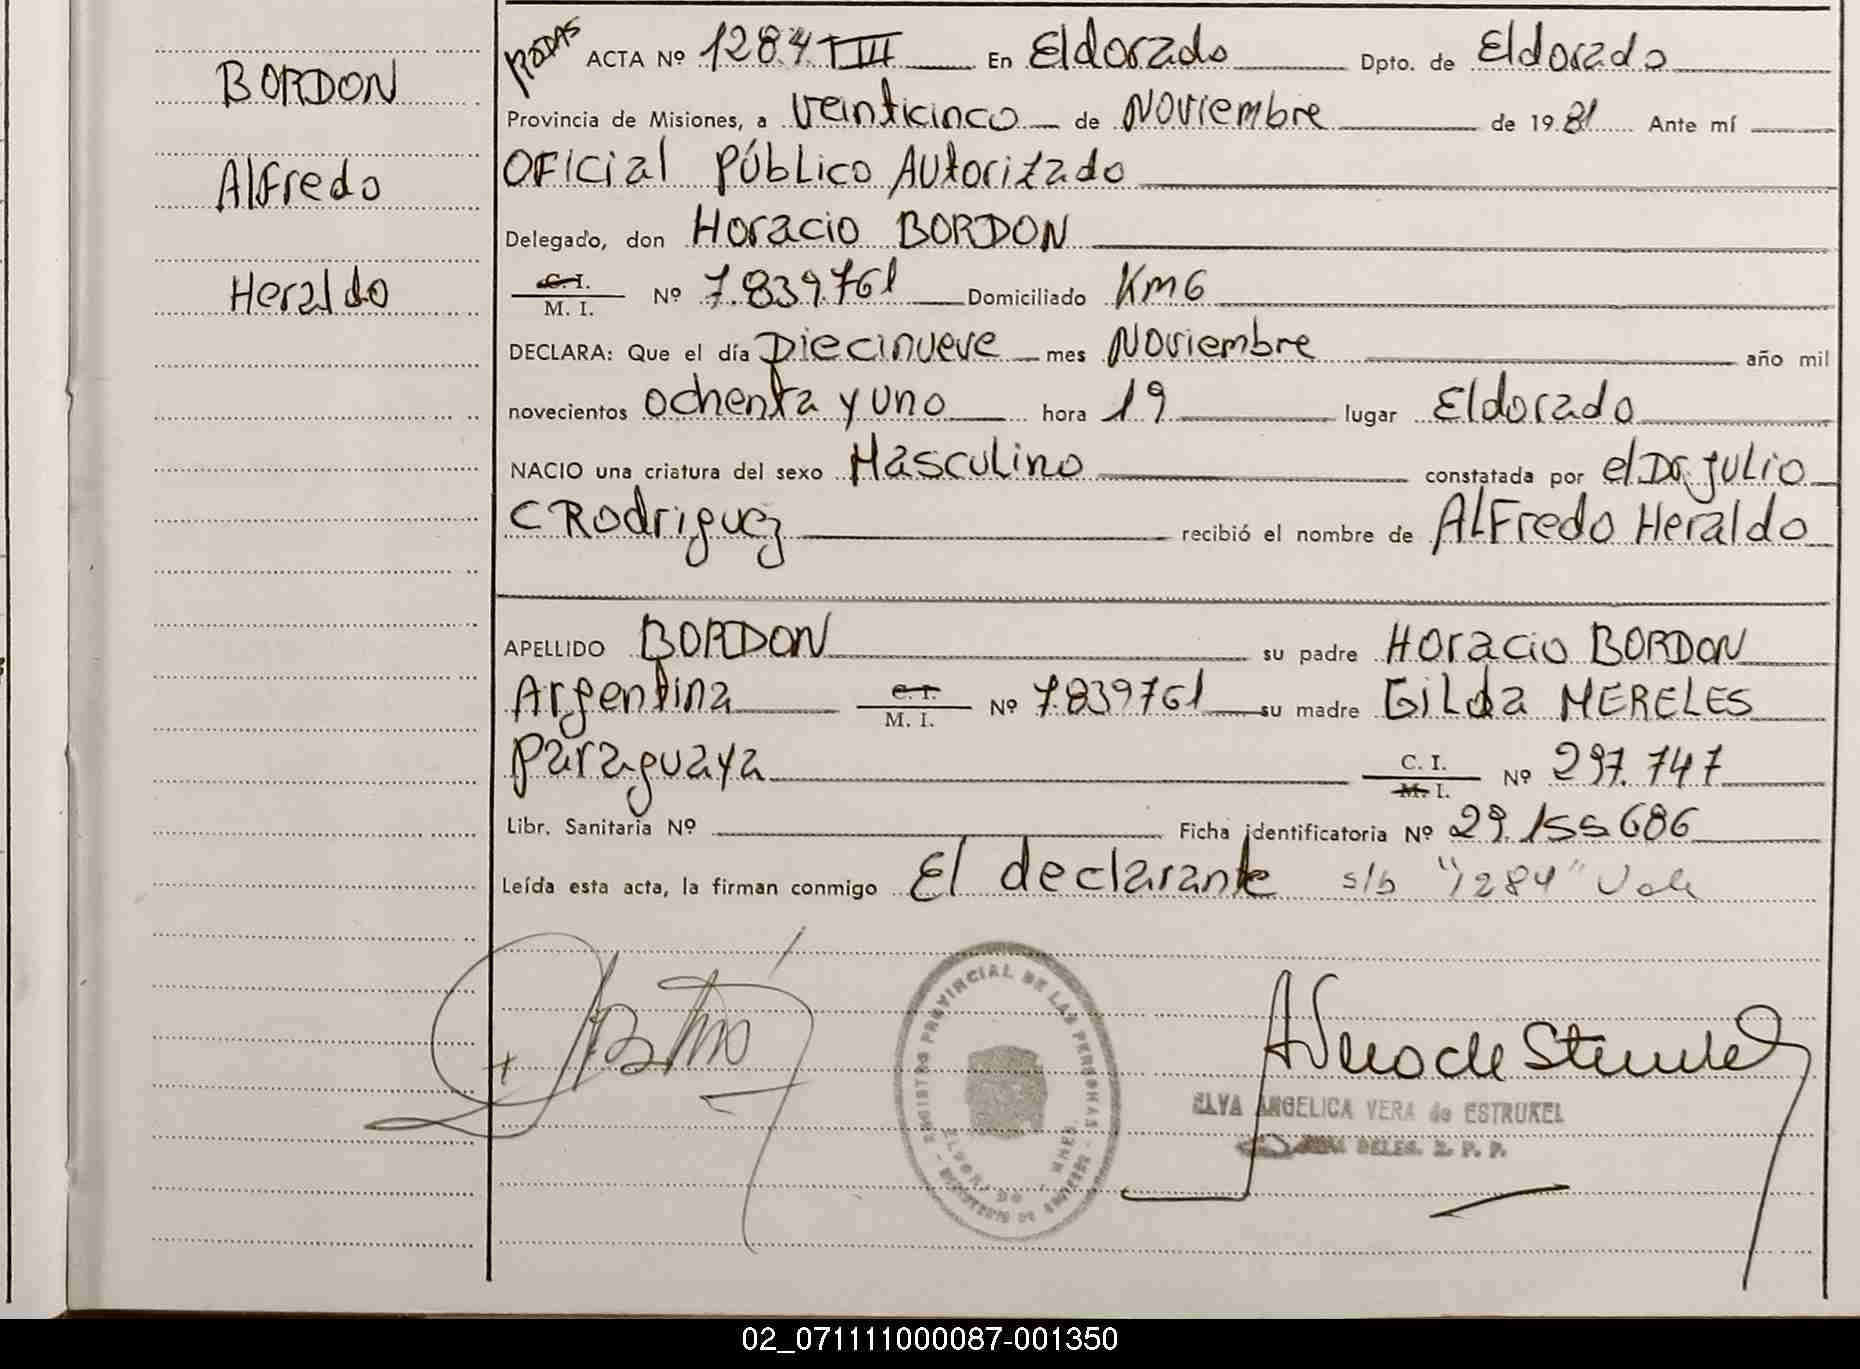 BORDON
Alfredo
Heraldo
RODAS ACTA Nº 1284 T III En Eldorado Dpto. de Eldorado
Provincia de Misiones, a Veinticinco de Noviembre de 1981 Ante mí
OFicial Público Autorizado
Delegado, don Horacio BORDON
C. I. / M. I. Nº 7.839.761 Domiciliado Km 6
DECLARA: Que el día Diecinueve mes Noviembre año mil
novecientos ochenta y uno hora 19 lugar Eldorado
NACIO una criatura del sexo Masculino constatada por el Dr. Julio
C Rodriguez recibió el nombre de ALFredo Heraldo
APELLIDO BORDON su padre Horacio BORDON
Argentina C. I. / M. I. Nº 7.839761 su madre Gilda MERELES
paraguaya C. I. / M. I. Nº 297.747
Libr. Sanitaria Nº Ficha identificatoria Nº 29.155686
Leída esta acta, la firman conmigo El declarante s/b "1284" Vale
REGISTRO PROVINCIAL DE LAS PERSONAS
ELDORADO
ELVA ANGELICA VERA de ESTRUKEL
DELEG. R. P. P.
02_071111000087-001350